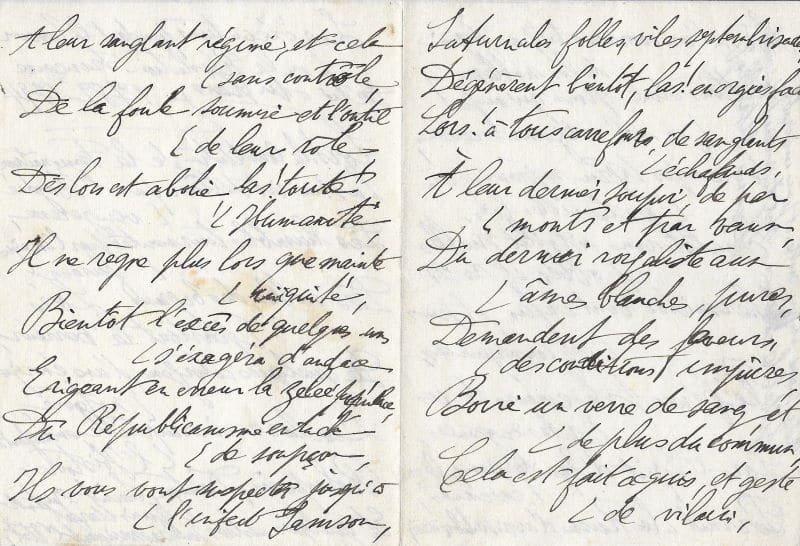 A leur sanglant régime, et cela
sans contrôle,
De la foule soumise et l'outil
de leur rôle
Dès lors est abolie, las! toute
l'Humanité,
Il ne règne plus lors que mainte
iniquité,
Bientôt l'excès de quelques uns
s'exagéra d'audace
Erigeant en erreur la zélée populace,
Du Républicanisme entaché
de soupçon,
Ils vous vont suspecter jusqu'à
l'infect Samson,
Saturnales folles, viles
Dégénèrent bientôt, las! énergies
Lors! à tous carrefours, de sanglants
échafauds,
À leur dernier soupir, de par
monts et par vaux,
Du dernier royaliste aux
âmes blanches, pures,
Demandent des
des conditions impures
Boire un verre de sang, et
de plus du commun,
Cela est fait acquis, et geste
de vilain,